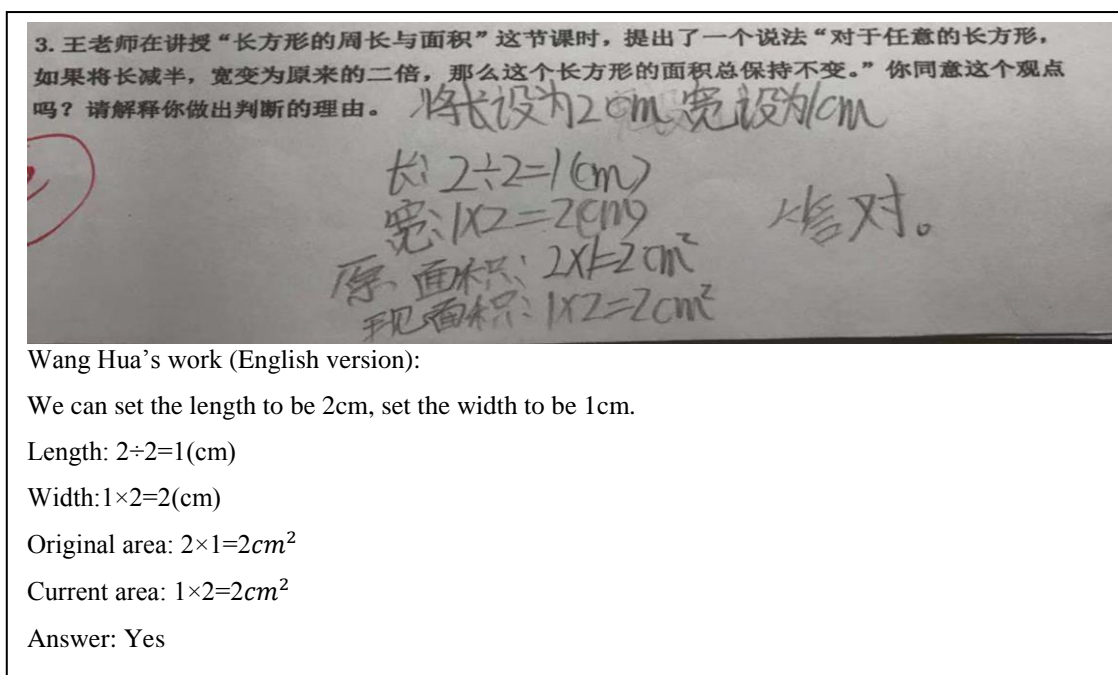 3. 王老师在讲授“长方形的周长与面积”这节课时，提出了一个说法“对于任意的长方形，
如果将长减半，宽变为原来的二倍，那么这个长方形的面积总保持不变。”你同意这个观点
吗？请解释你做出判断的理由。 将长设为2cm 宽设为1cm
长：2÷2=1(cm)
宽：1×2=2(cm)
答对。
原面积：2×1=2cm²
现面积：1×2=2cm²
Wang Hua’s work (English version):
We can set the length to be 2cm, set the width to be 1cm.
Length: 2÷2=1(cm)
Width:1×2=2(cm)
Original area: 2×1=2cm²
Current area: 1×2=2cm²
Answer: Yes